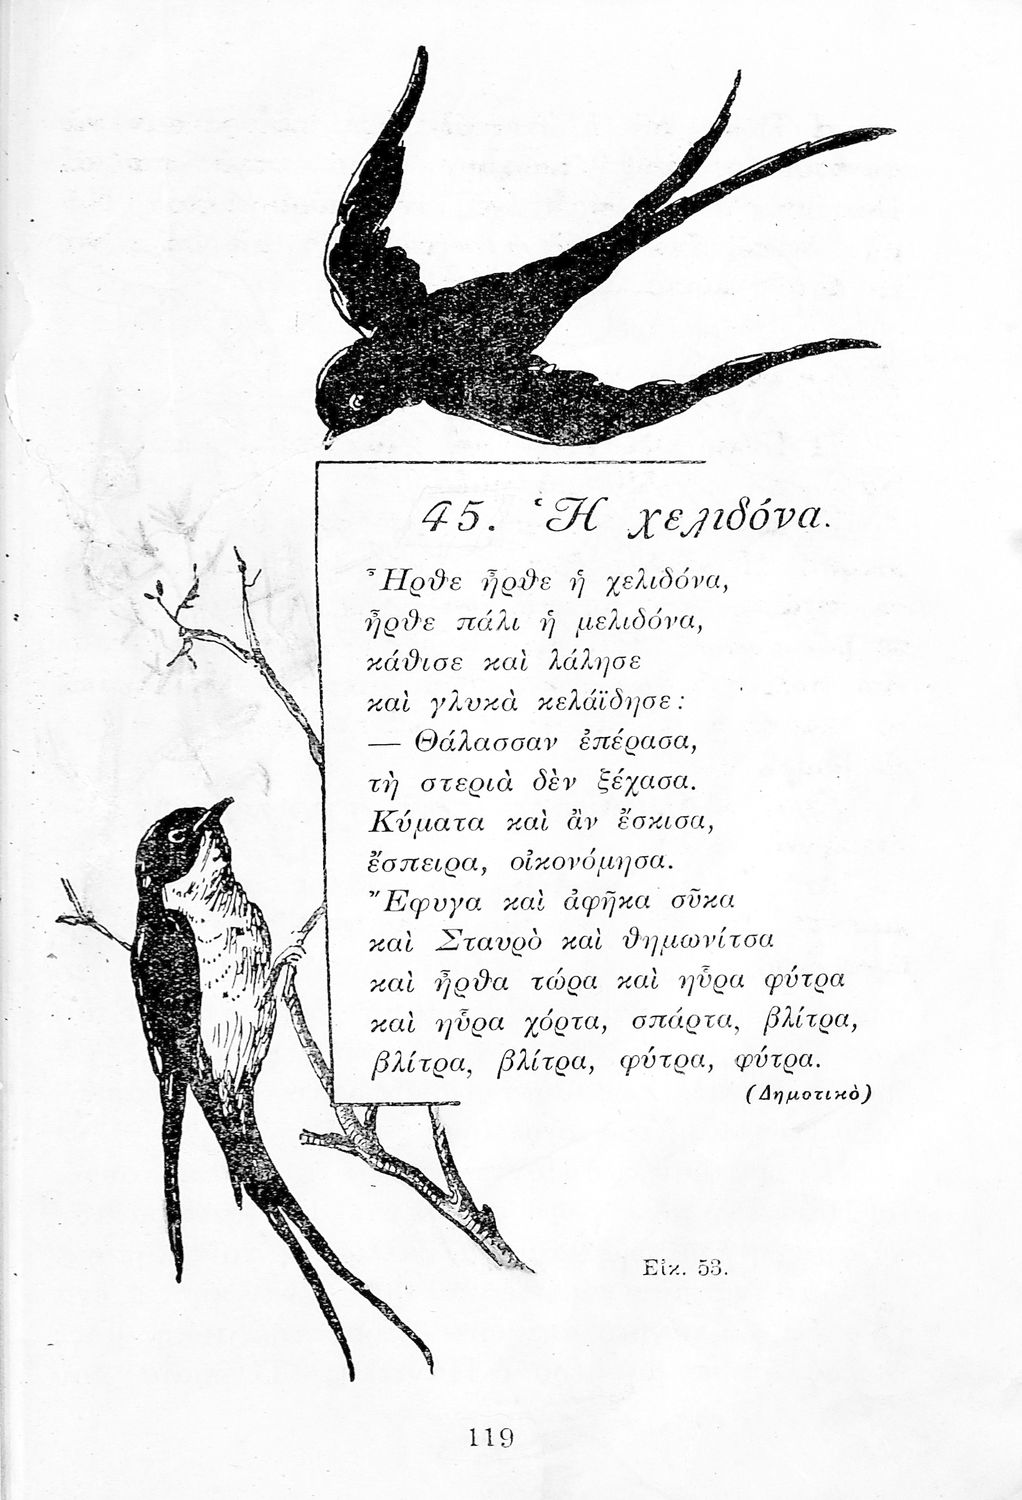 45. Ἡ χελιδόνα.
Ἦρθε ἦρθε ἡ χελιδόνα,
ἦρθε πάλι ἡ μελιδόνα,
κάθισε καὶ λάλησε
καὶ γλυκὰ κελάϊδησε:
— Θάλασσαν ἐπέρασα,
τὴ στεριὰ δὲν ξέχασα.
Κύματα καὶ ἂν ἔσκισα,
ἔσπειρα, οἰκονόμησα.
Ἔφυγα καὶ ἀφῆκα σῦκα
καὶ Σταυρὸ καὶ θημωνίτσα
καὶ ἦρθα τώρα καὶ ηὗρα φύτρα
καὶ ηὗρα χόρτα, σπάρτα, βλίτρα,
βλίτρα, βλίτρα, φύτρα, φύτρα.
(Δημοτικὸ)
Εἰκ. 53.
119